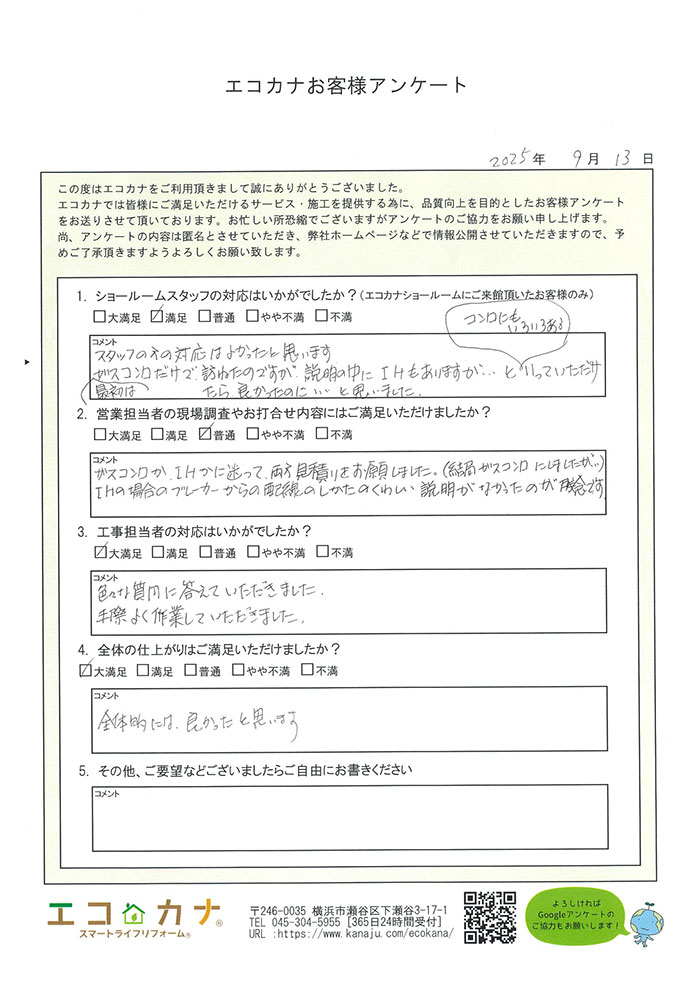 エコカナお客様アンケート
2025年 9月 13日
この度はエコカナをご利用頂きまして誠にありがとうございました。
エコカナでは皆様にご満足いただけるサービス・施工を提供する為に、品質向上を目的としたお客様アンケート
をお送りさせて頂いております。お忙しい所恐縮でございますがアンケートのご協力をお願い申し上げます。
尚、アンケートの内容は匿名とさせていただき、弊社ホームページなどで情報公開させていただきますので、予
めご了承頂きますようよろしくお願い致します。
1. ショールームスタッフの対応はいかがでしたか？(エコカナショールームにご来館頂いたお客様のみ)
□大満足 ☑満足 □普通 □やや不満 □不満
コンロにも
いろいろある
コメント
スタッフの方の対応はよかったと思います
ガスコンロだけで、訪れたのですが、説明の中にIHもありますが…と いっていただけ
最初は たら、良かったのに…と思いました。
2. 営業担当者の現場調査やお打合せ内容にはご満足いただけましたか？
□大満足 □満足 ☑普通 □やや不満 □不満
コメント
ガスコンロか、IHかに迷って、両方見積りをお願しました。(結局ガスコンロにしましたが…)
IHの場合のブレーカーからの配線のしかたのくわしい説明がなかったのが残念です
3. 工事担当者の対応はいかがでしたか？
☑大満足 □満足 □普通 □やや不満 □不満
コメント
色々な質問に答えていただきました.
手際よく作業していただきました.
4. 全体の仕上がりはご満足いただけましたか？
☑大満足 □満足 □普通 □やや不満 □不満
コメント
全体的には、良かったと思います
5. その他、ご要望などございましたらご自由にお書きください
コメント
エコカナ®
スマートライフリフォーム®
〒246-0035 横浜市瀬谷区下瀬谷3-17-1
TEL 045-304-5955 [365日24時間受付]
URL :https://www.kanaju.com/ecokana/
よろしければ
Googleアンケートの
ご協力もお願いします！